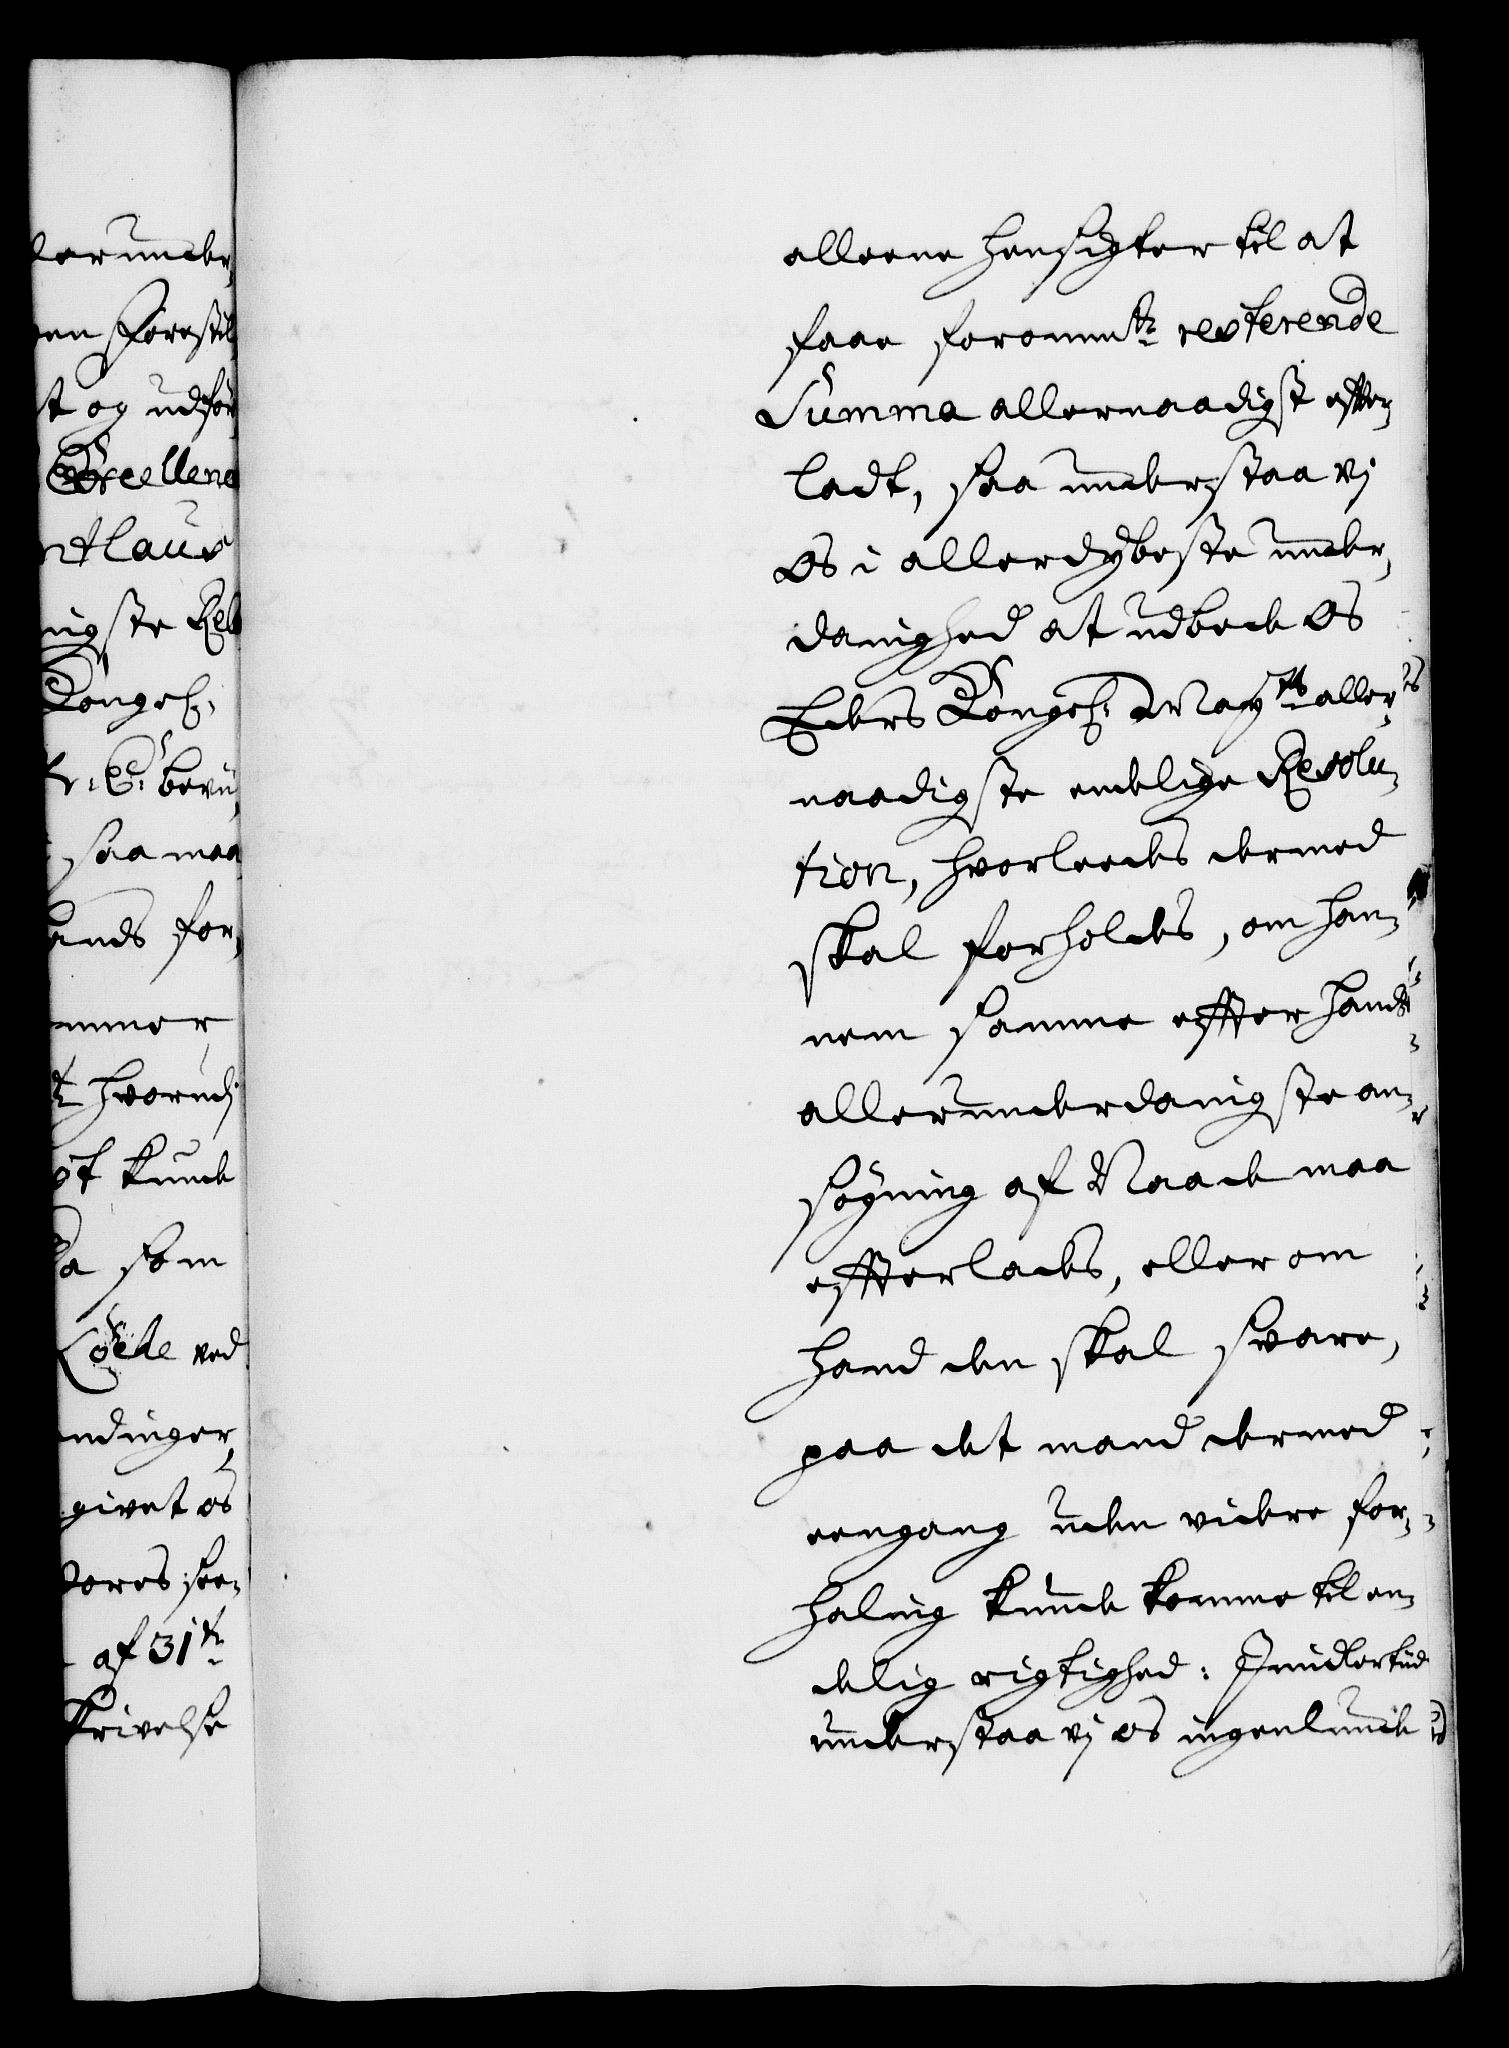 allerunder,
en Forestil
st og udför
Excellence
ntlaus
nigste Rel
Kongel:
Kr: E: berü
saa maa
hands for,
ummer
hvorudj
of kunde
da som
Löete ved
ndinger
givet os
vores see,
af 31te
skrivelse
alleene hensigter til at
faae foromte resterende
Summa allernaadigst effter,
ladt, saa understaa vj
Os i allerdybeste under,
danighed at udbede Os
Eders Kongel: Mayts aller,
naadigste endelige Resolu,
tion, hvorleedes dermed
skal forholdes, om han,
nem samme effter hands
allerunderdanigste an,
søgning af Naade maa
effterlades, eller om
hand den skal svare,
paa det mand dermed
eengang uden videre for,
haling kunde komme til en,
delig rigtighed: Jmidlertiid
understaa vj os ingenlunde